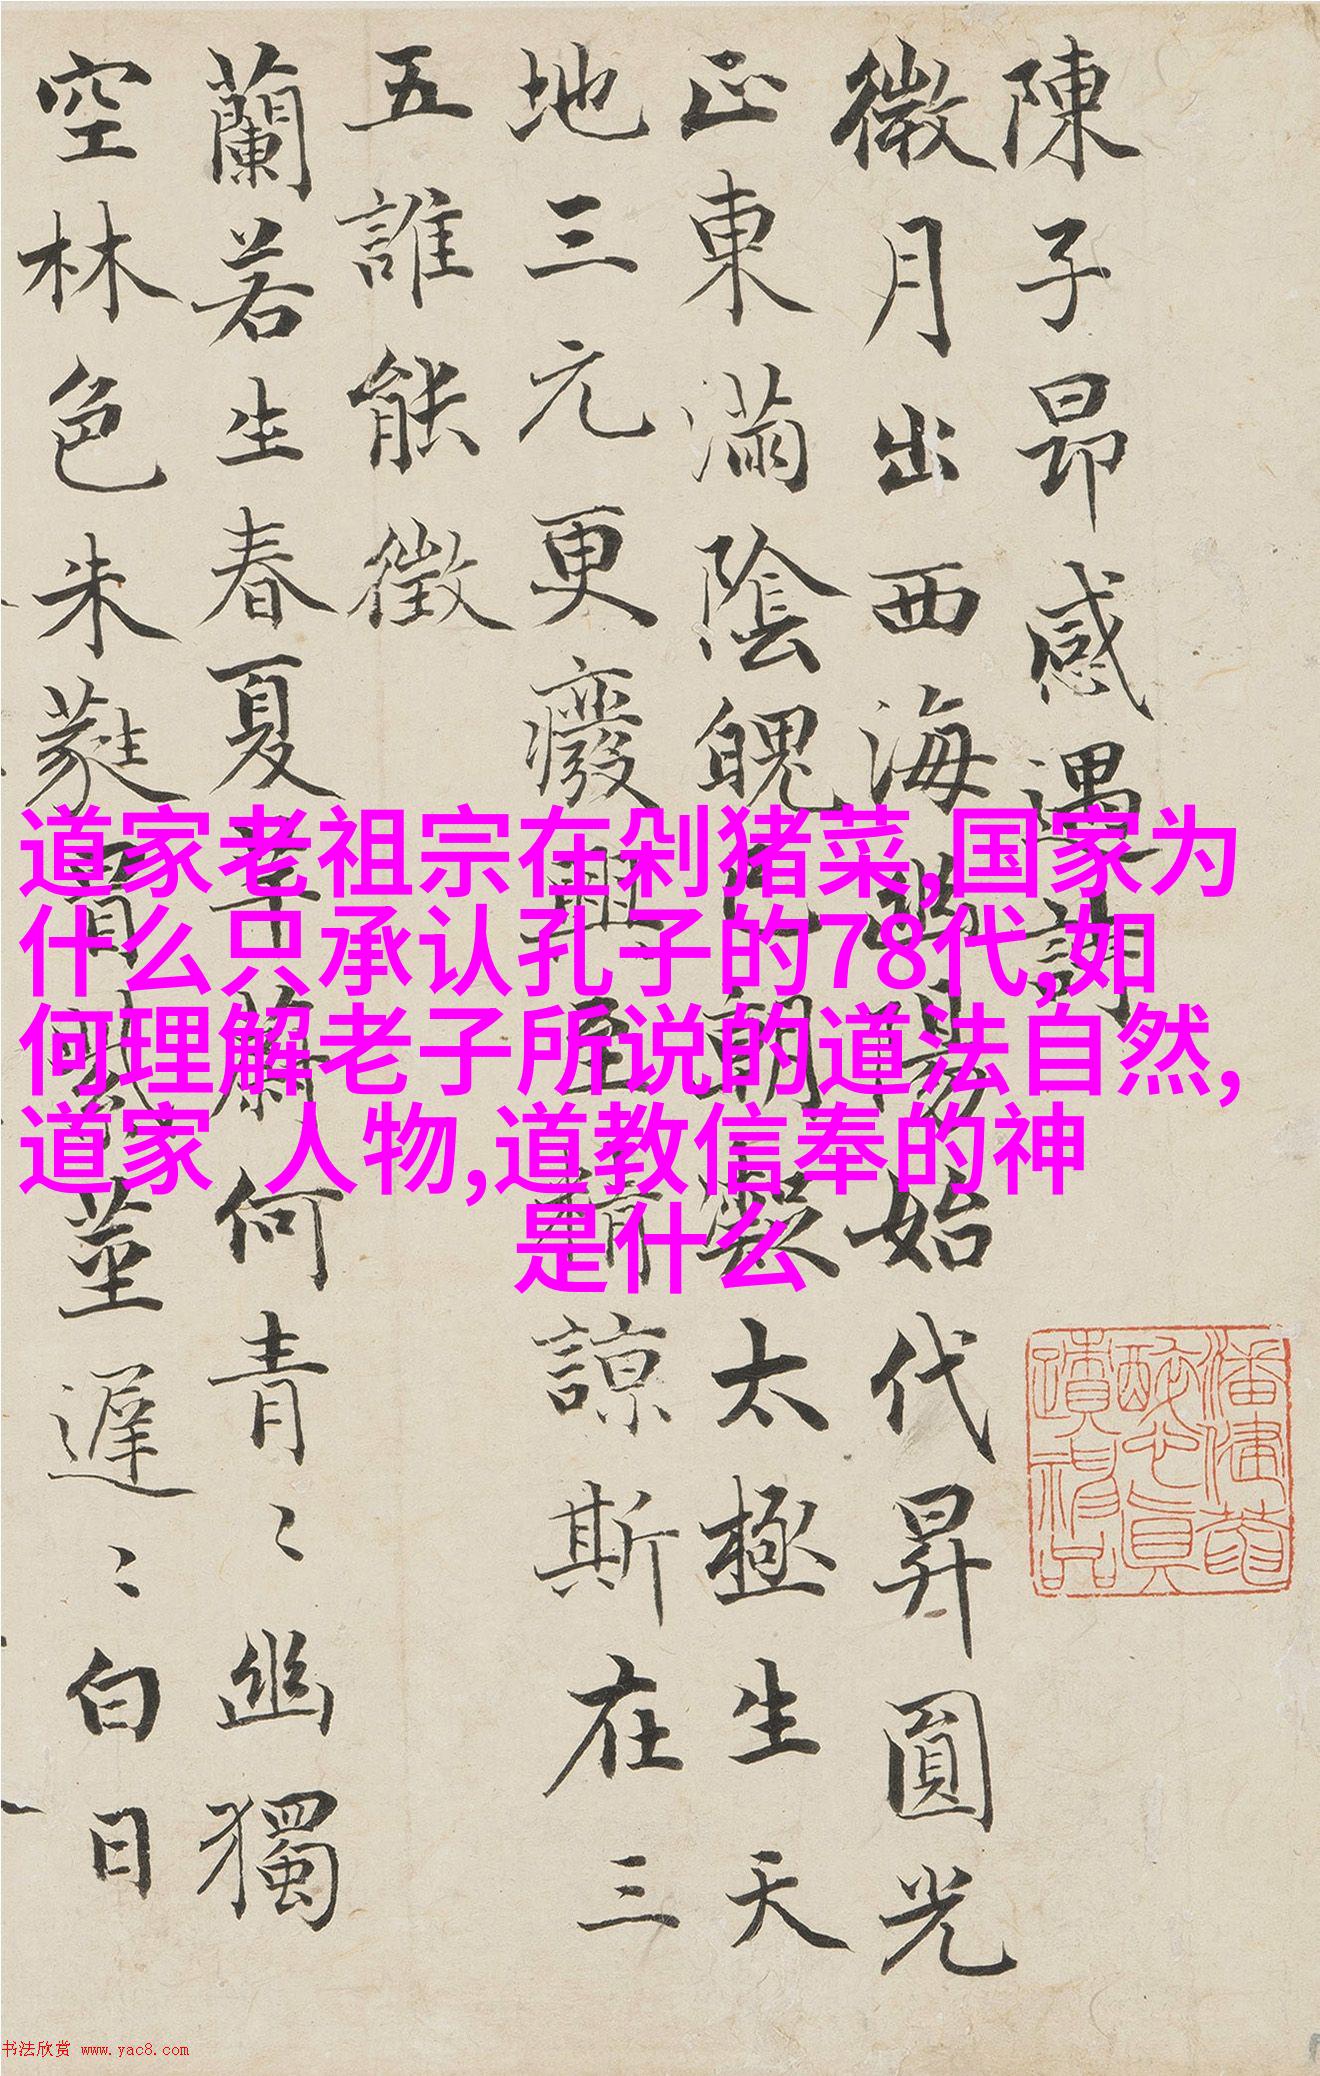 陳子昂感遇詩
微月出西海幽陽始代昇圓光
正東滿陰魄已朝凝太極生天
地三元更癈興至精諒斯在三
五誰能徵
蘭若生春夏芊蔚何青〻幽獨
空林色朱蕤冒紫莖遲〻白日
道家老祖宗在剁猪菜,国家为
什么只承认孔子的78代,如
何理解老子所说的道法自然,
道家 人物,道教信奉的神
是什么
书法欣赏 www.yac8.com